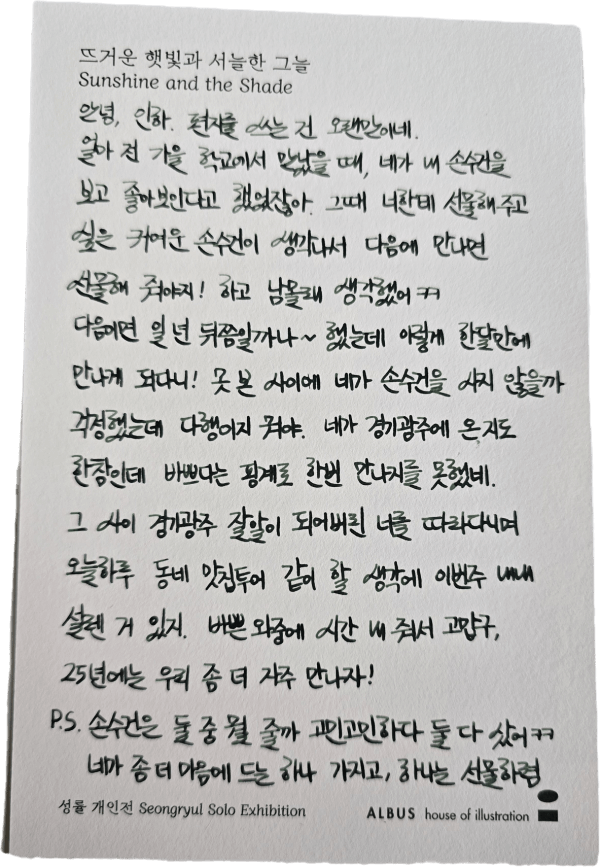 뜨거운 햇빛과 서늘한 그늘
Sunshine and the Shade
안녕, 인하. 편지를 쓰는 건 오랜만이네.
얼마 전 가을 학교에서 만났을 때, 네가 내 손수건을
보고 좋아보인다고 했었잖아. 그때 너한테 선물해주고
싶은 귀여운 손수건이 생각나서 다음에 만나면
선물해 줘야지! 하고 남몰래 생각했어ㅋㅋ
다음이면 일 년 뒤쯤일까나~ 했는데 이렇게 한달만에
만나게 되다니! 못 본 사이에 네가 손수건을 사지 않을까
걱정했는데 다행이지 뭐야. 네가 경기광주에 온지도
한참인데 바쁘다는 핑계로 한번 만나지를 못했네.
그 사이 경기광주 잘알이 되어버린 너를 따라다니며
오늘하루 동네 맛집투어 같이 할 생각에 이번주 내내
설렌 거 있지. 바쁜 와중에 시간 내 줘서 고맙구,
25년에는 우리 좀 더 자주 만나자!
P.S. 손수건은 둘 중 뭘 줄까 고민고민하다 둘 다 샀어ㅋㅋ
네가 좀 더 마음에 드는 하나 가지고, 하나는 선물하렴
성률 개인전 Seongryul Solo Exhibition
ALBUS house of illustration